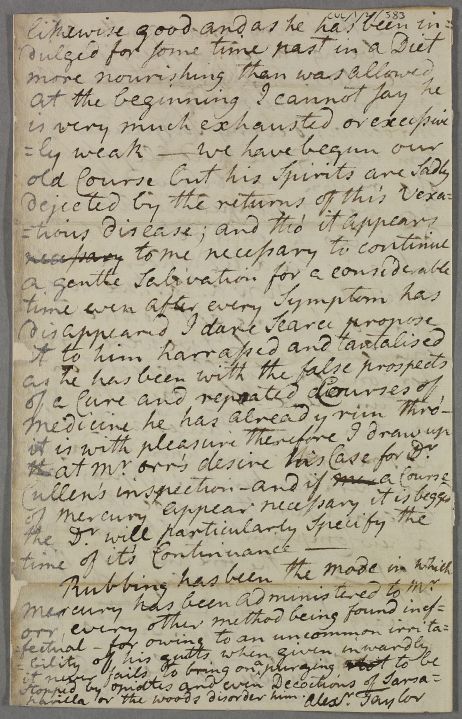 CUL/1/2/383
likewise good and as he has been in-
dulged for some time past in a Diet
more nourishing than was allowed
at the beginning I cannot say he
is very much exhausted or excessive
=ly weak — we have begun our
old Course but his Spirits are Sadly
dejected by the returns of this Vexa-
=tious disease; and tho' it appears
necessary to me necessary to continue
a gentle Salivation for a considerable
time even after every Symptom has
disappeared I dare Scarce propose
it to him harrassed and tantalised
as he has been with the false prospects
of a Cure and repeated Courses of
medicine he has already run thro'—
it is with pleasure therefore I draw up
at Mr Orr's desire his Case for Dr
Cullen's inspection — and if a Course
of Mercury appear necessary it is begged
the Dr will particularly Specify the
time of it's Continuance —
Rubbing has been the mode in which
mercury has been administered to Mr
Orr, every other method being found inef-
fectual — for owing to an uncommon irrita-
=bility of his gutts when given inwardly
it never fails to bring on a purging not to be
stopped by opiates and even Decoctions of Sarsa=
=parila or the woods disorder him Alexr. Taylor